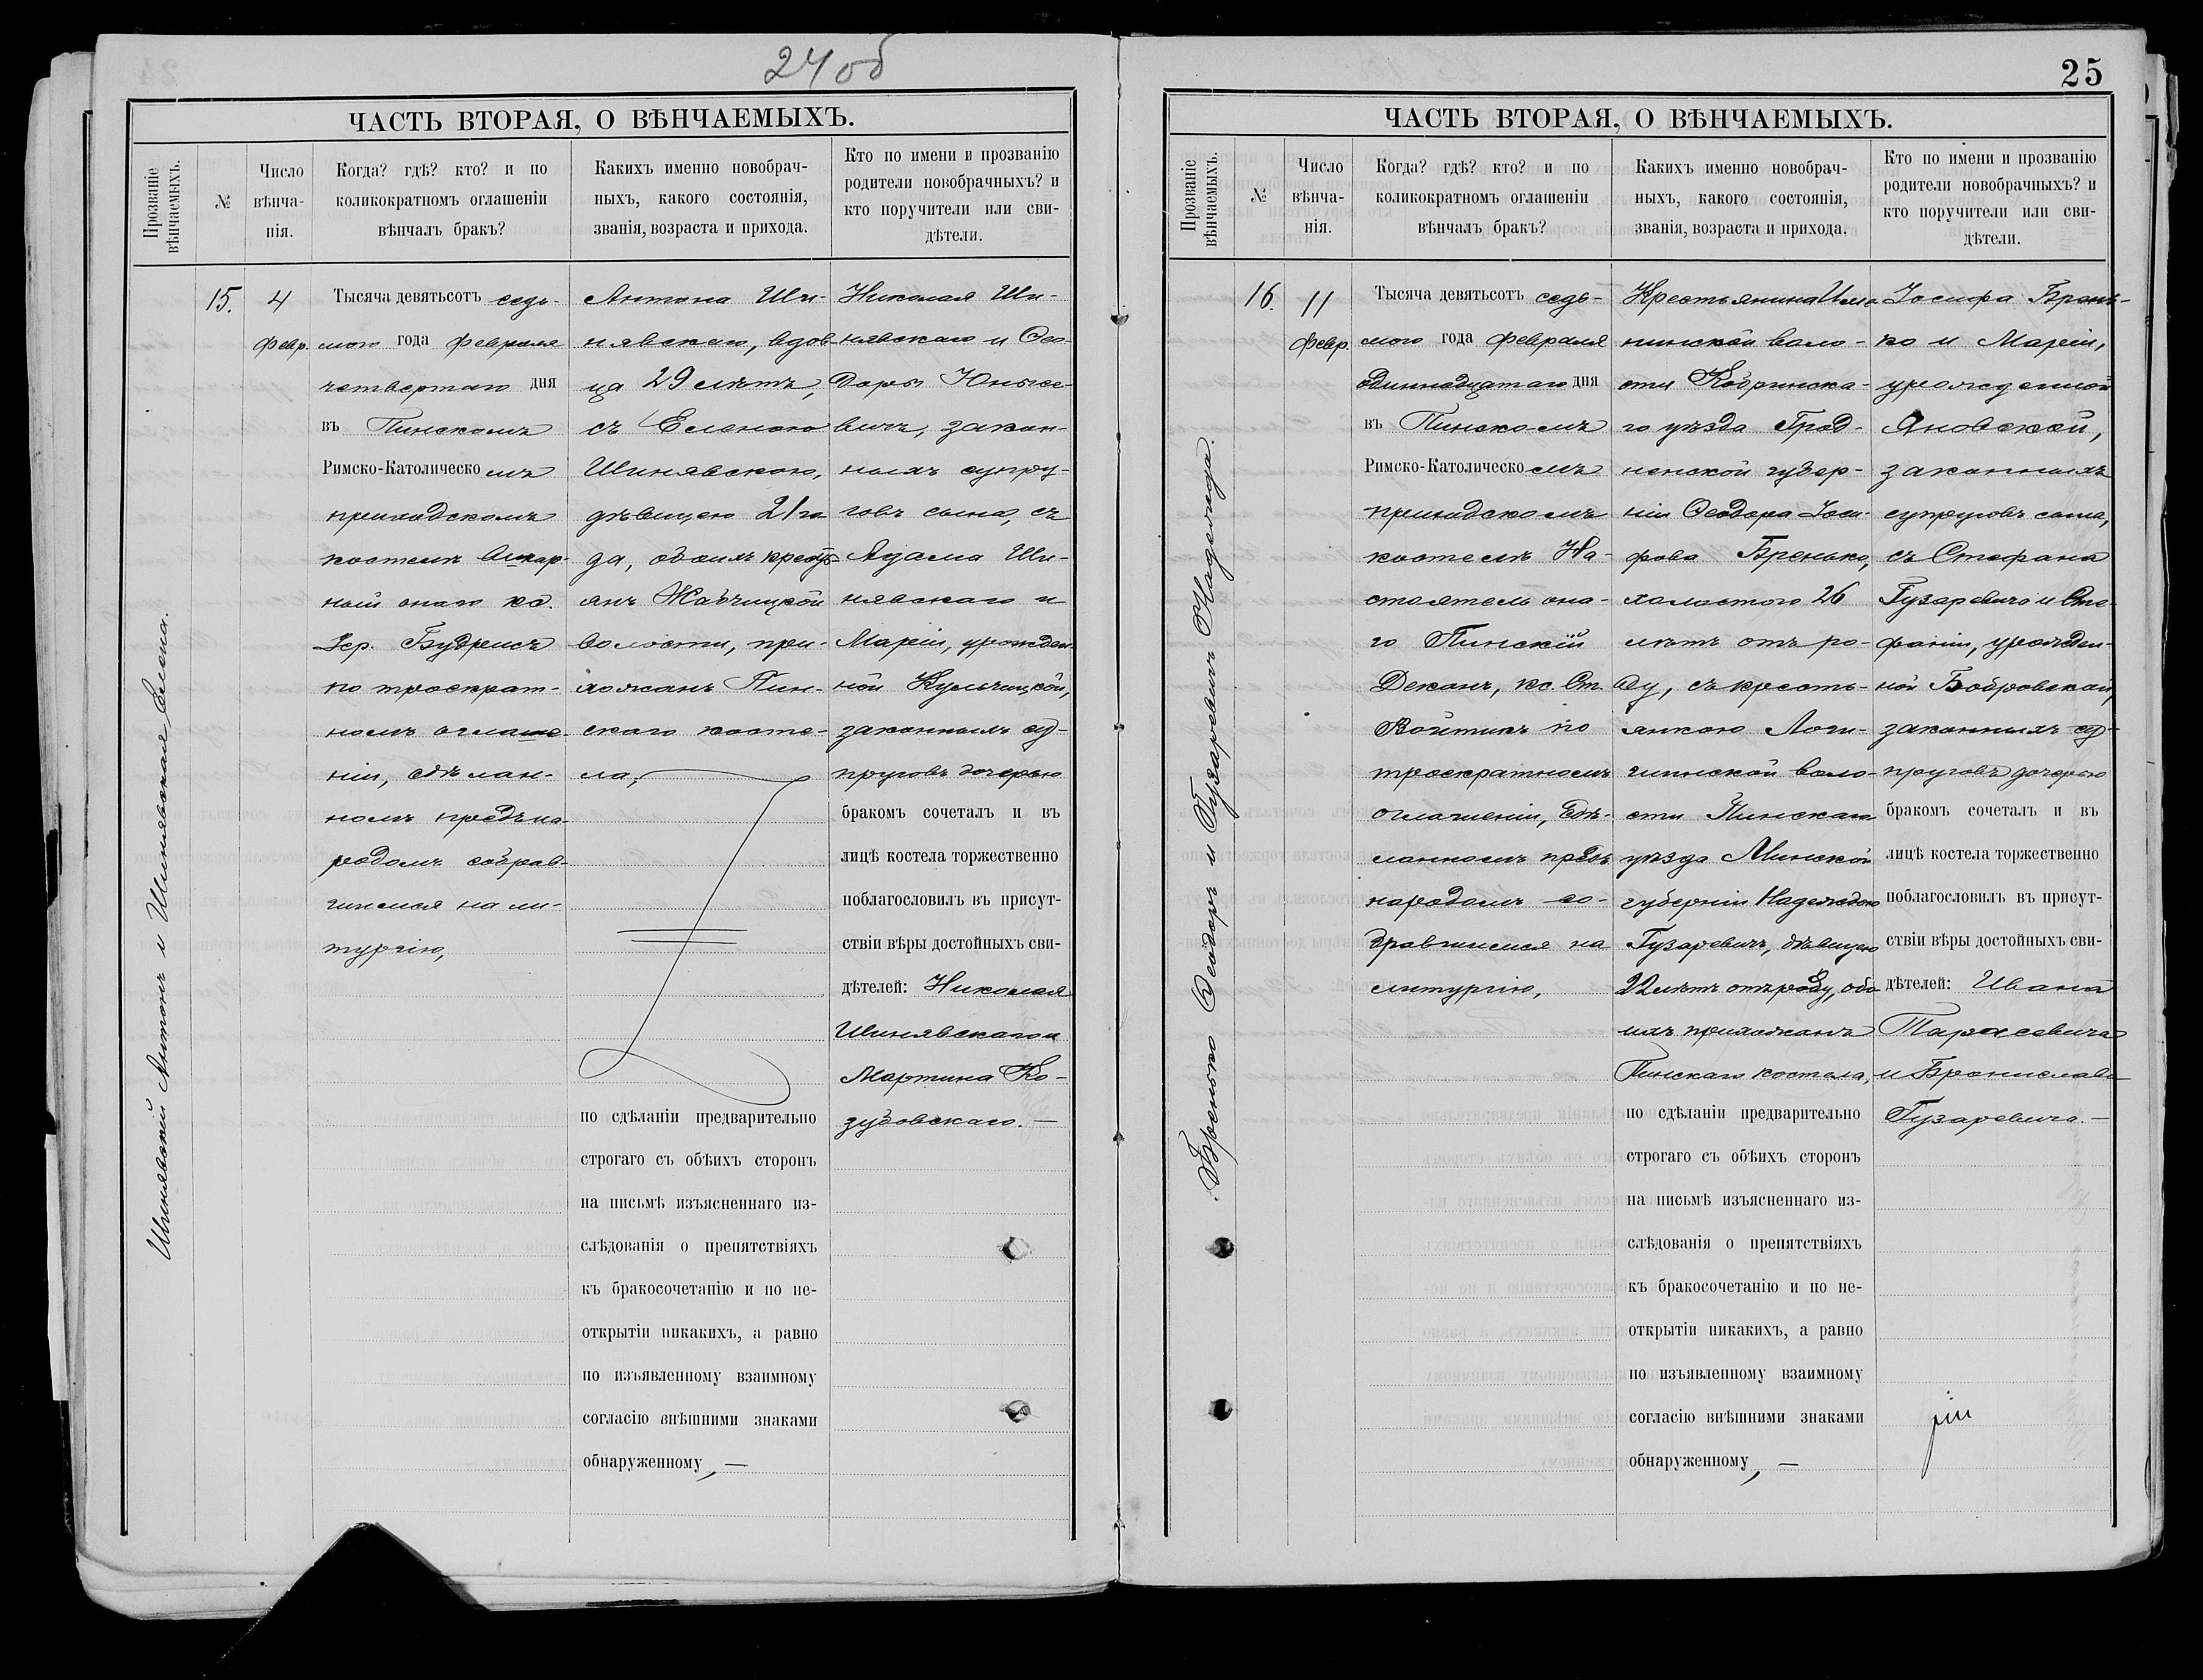 24 об
ЧАСТЬ ВТОРАЯ, О ВѢНЧАЕМЫХЪ.
Прозваніе
вѣнчаемыхъ.
№
Число
вѣнча-
нія.
Когда? гдѣ? кто? и по
коликократномъ оглашеніи
вѣнчалъ бракъ?
Какихъ именно новобрач-
ныхъ, какого состоянія,
званія, возраста и прихода.
Кто по имени и прозванію
родители новобрачныхъ? и
кто поручители или сви-
дѣтели.
Шинявскій Антонъ и Шинявская Елена.
15.
4
Февр.
Тысяча девятьсотъ седь-
мого года февраля
четвертаго дня
въ Пинскомъ
Римско-Католическомъ
приходскомъ
костелѣ Викар-
ный онаго кс.
Іер. Будрисъ
по троекрат-
номъ оглаше-
ніи, сдѣлан-
номъ предъ на-
родомъ собрав-
шимся на ли-
тургію,
Антона Ши-
нявскаго, вдов-
ца 29 лѣтъ,
съ Еленою
Шинявскою,
дѣвицею 21 го-
да, обоихъ кресть-
янъ Жабчицкой
волости, при-
хожанъ Пин-
скаго косте-
ла,
по сдѣланіи предварительно
строгаго съ обѣихъ сторонъ
на письмѣ изъясненнаго из-
слѣдованія о препятствіяхъ
къ бракосочетанію и по не-
открытіи никакихъ, а равно
по изъявленному взаимному
согласію внѣшними знаками
обнаруженному, —
Николая Ши-
нявскаго и Ѳео-
доры Юнысе-
вичъ, закон-
ныхъ супру-
говъ сына, съ
Адама Ши-
нявскаго и
Маріи, урожден-
ной Кульчицкой,
законныхъ су-
пруговъ дочерью
бракомъ сочеталъ и въ
лицѣ костела торжественно
поблагословилъ въ присут-
ствіи вѣры достойныхъ сви-
дѣтелей: Николая
Шинявскаго и
Мартина Ко-
зубовскаго. —
25
ЧАСТЬ ВТОРАЯ, О ВѢНЧАЕМЫХЪ.
Прозваніе
вѣнчаемыхъ.
№
Число
вѣнча-
нія.
Когда? гдѣ? кто? и по
коликократномъ оглашеніи
вѣнчалъ бракъ?
Какихъ именно новобрач-
ныхъ, какого состоянія,
званія, возраста и прихода.
Кто по имени и прозванію
родители новобрачныхъ? и
кто поручители или сви-
дѣтели.
Бренько Ѳеодоръ и Гузаревичъ Надежда.
16.
11
Февр.
Тысяча девятьсотъ седь-
мого года февраля
одиннадцатаго дня
въ Пинскомъ
Римско-Католическомъ
приходскомъ
костелѣ На-
стоятель она-
го Пинскій
Деканъ, кс. Ст.
Войтикъ по
троекратномъ
оглашеніи, сдѣ-
ланномъ предъ
народомъ со-
бравшимся на
литургію,
Крестьянина
нинской воло-
сти Кобринска-
го уѣзда Грод-
ненской губер-
ніи Ѳеодора Іоси-
фова Бренько,
холостого 26
лѣтъ отъ ро-
ду, съ кресть-
янкою Логи-
шинской воло-
сти Пинскаго
уѣзда Минской
губерніи Надеждою
Гузаревичъ, дѣвицею
22 лѣтъ отъ роду, обо-
ихъ прихожанъ
Пинскаго костела,
по сдѣланіи предварительно
строгаго съ обѣихъ сторонъ
на письмѣ изъясненнаго из-
слѣдованія о препятствіяхъ
къ бракосочетанію и по не-
открытіи никакихъ, а равно
по изъявленному взаимному
согласію внѣшними знаками
обнаруженному, —
Іосифа Брень-
ко и Маріи,
урожденной
Яновской,
законныхъ
супруговъ сына,
съ Стефана
Гузаревича и Сте-
фаніи, урожден-
ной Бобровской,
законныхъ су-
пруговъ дочерью
бракомъ сочеталъ и въ
лицѣ костела торжественно
поблагословилъ въ присут-
ствіи вѣры достойныхъ сви-
дѣтелей: Ивана
Тарасевича
и Бронислава
Гузаревича. —